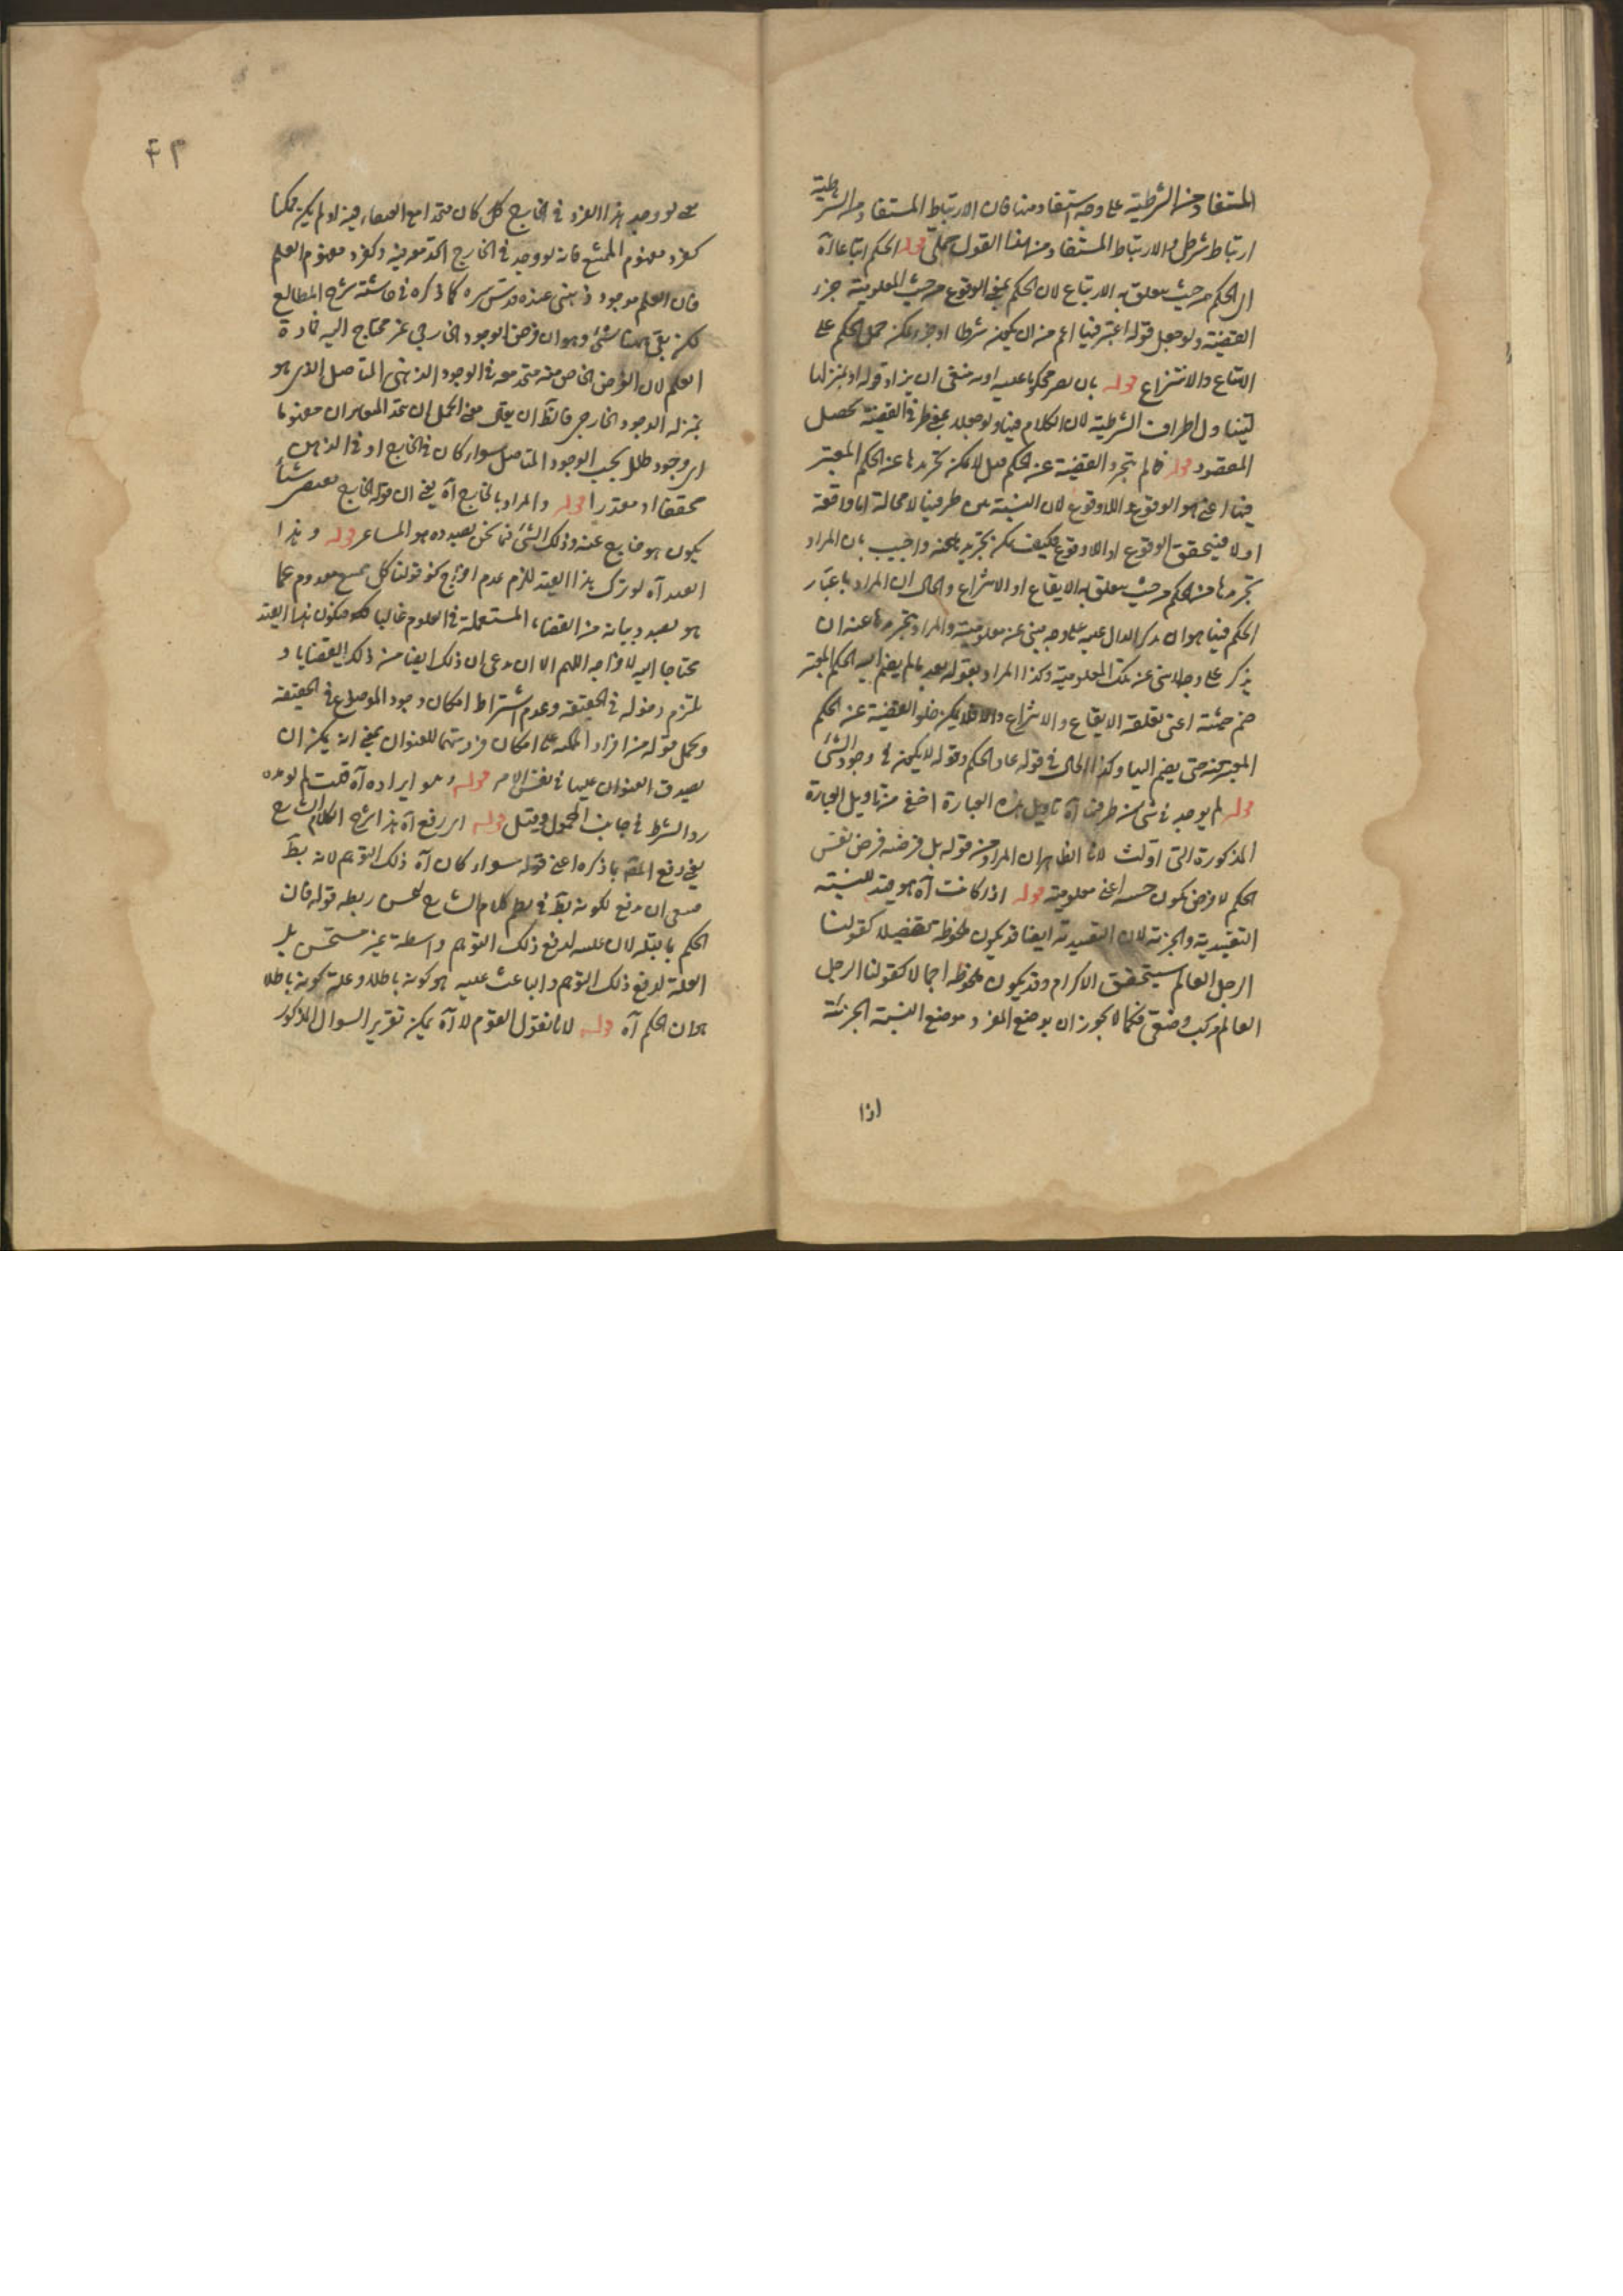 المستفاد من الشرطية على وجه يستفاد منها فان الارتباط المستفاد من الشرطية
ارتباط شرطي والارتباط المستفاد من هذا القول حملي قوله الحكم ايقاعا آه
اى الحكم من حيث يتعلق به الايقاع لان الحكم بمعنى الوقوع من حيث المعلومية جزء
القضية ولو جعل قوله اعتبر فيها اعم من ان يكون شرطا او جزء يمكن حمل الحكم على
الايقاع والانتزاع قوله بان يصير محكوما عليه او به ينبغى ان يزاد قوله او بمنزلتها
ليتناول اطراف الشرطية لان الكلام فيها ولو جعله بمعنى طرفى القضية لحصل
المقصود قوله فما لم يتجرد القضية عن الحكم قيل لا يمكن تجريدها عن الحكم المعتبر
فيها اعنى هو الوقوع واللاوقوع لان النسبة بين طرفيها لا محالة اما واقعة
او لا فيتحقق الوقوع او اللاوقوع فكيف يمكن تجريدها عنه واجيب بان المراد
تجريدها من الحكم من حيث يتعلق به الايقاع او الانتزاع والحال ان المراد باعتبار
الحكم فيها هو ان يذكر الدال عليه على وجه يبنى عن معلوميته والمراد بتجريدها عنه ان
يذكر على وجه لا يبنى عن تلك المعلومية وكذا المراد بقوله بعد ما لم يضم اليه الحكم المعتبر
ضم حيثية اعنى تعلقه الايقاع والانتزاع والا فلا يمكن خلو القضية عن الحكم
المعتبر عنه حتى يضم اليها وكذا الحال فى قوله عاد الحكم وقوله لا يكون فى وجود الشئ
قوله لم يوجد فى شئ من طرفيها آه تاويل هذه العبارة اخفى من تاويل العبارة
المذكورة التى اولت لان الظاهر ان المراد من قوله بل فرضه فرض نفس
الحكم لا فرض كون حيثية اعنى معلومية قوله اذا كانت آه هو قيد للنسبة
التقييدية والجزئية لان التقييدية ايضا قد يكون ملحوظة تفصيلا كقولنا
الرجل العالم يستحق الاكرام وقد يكون ملحوظة اجمالا كقولنا الرجل
العالم مركب وصفى فكما لا يجوز ان يوضع المفرد موضع النسبة الجزئية
اذا
۴۳
حتى لو وجد هذا الفرد فى الخارج كل كان متحدا مع العنقاء حينئذ او لم يكن ممكنا
كفرد مفهوم الممتنع فانه لو وجد فى الخارج اتحد معه فيه وكفرد مفهوم العلم
فان العلم موجود ذهنى عنده قدس سره كما ذكره فى حاشية شرح المطالع
لكن بقى ههنا شئ وهو ان فرض الوجود الخارجى غير محتاج اليه فى مادة
العلم لان الفرض الخاص منه متحد معه فى الوجود الذهنى المتاصل الذى هو
بمنزلة الوجود الخارجى فالظ ان يقال معنى الحمل ان يتحد المتغايران مفهوما
اى وجود ظلى بحسب الوجود المتاصل سواء كان فى الخارج او فى الذهن
محققا او مقدرا قوله والمراد بالخارج آه يعنى ان قوله الخارج يقتضى شيئا
يكون هو خارج عنه وذلك الشئ فيما نحن بصدده هو المشاعر قوله وهذا
القيد آه لو ترك هذا القيد للزم عدم اخراج نحو قولنا كل ممتنع معدوم عما
هو بصدد بيانه من القضايا المستعملة فى العلوم غالبا فيكون هذا القيد
محتاجا اليه لاخراجه اللهم الا ان يدعى ان ذلك ايضا من ذلك القضايا و
يلتزم دخوله فى الحقيقة وعدم اشتراط امكان وجود الموضوع فى الحقيقة
ويحمل قوله من افراد الممكنة على امكان فرديتها للعنوان بمعنى انه يمكن ان
يصدق العنوان عليها فى نفس الامر قوله وهو ايراده آه قلت لم يورده
رد الشرط فى جانب المحمول وقيل قوله اى رفع آه هذا شرح الكلام الشارح
يعنى دفع الم بما ذكره اعنى قوله سواء كان آه ذلك التوهم لانه بط
ينبغى ان يدفع لكونه بط فى نظم كلام الشارح يحسن ربطه قوله فان
الحكم بما قبله لان علية لدفع ذلك التوهم واسطة غير مستحسن بل
العلة لدفع ذلك التوهم والباعث عليه هو كونه باطلا وعلة كونه باطلا
هو ان الحكم آه قوله لانا نقول القوم لا آه يمكن تقرير السوال المذكور